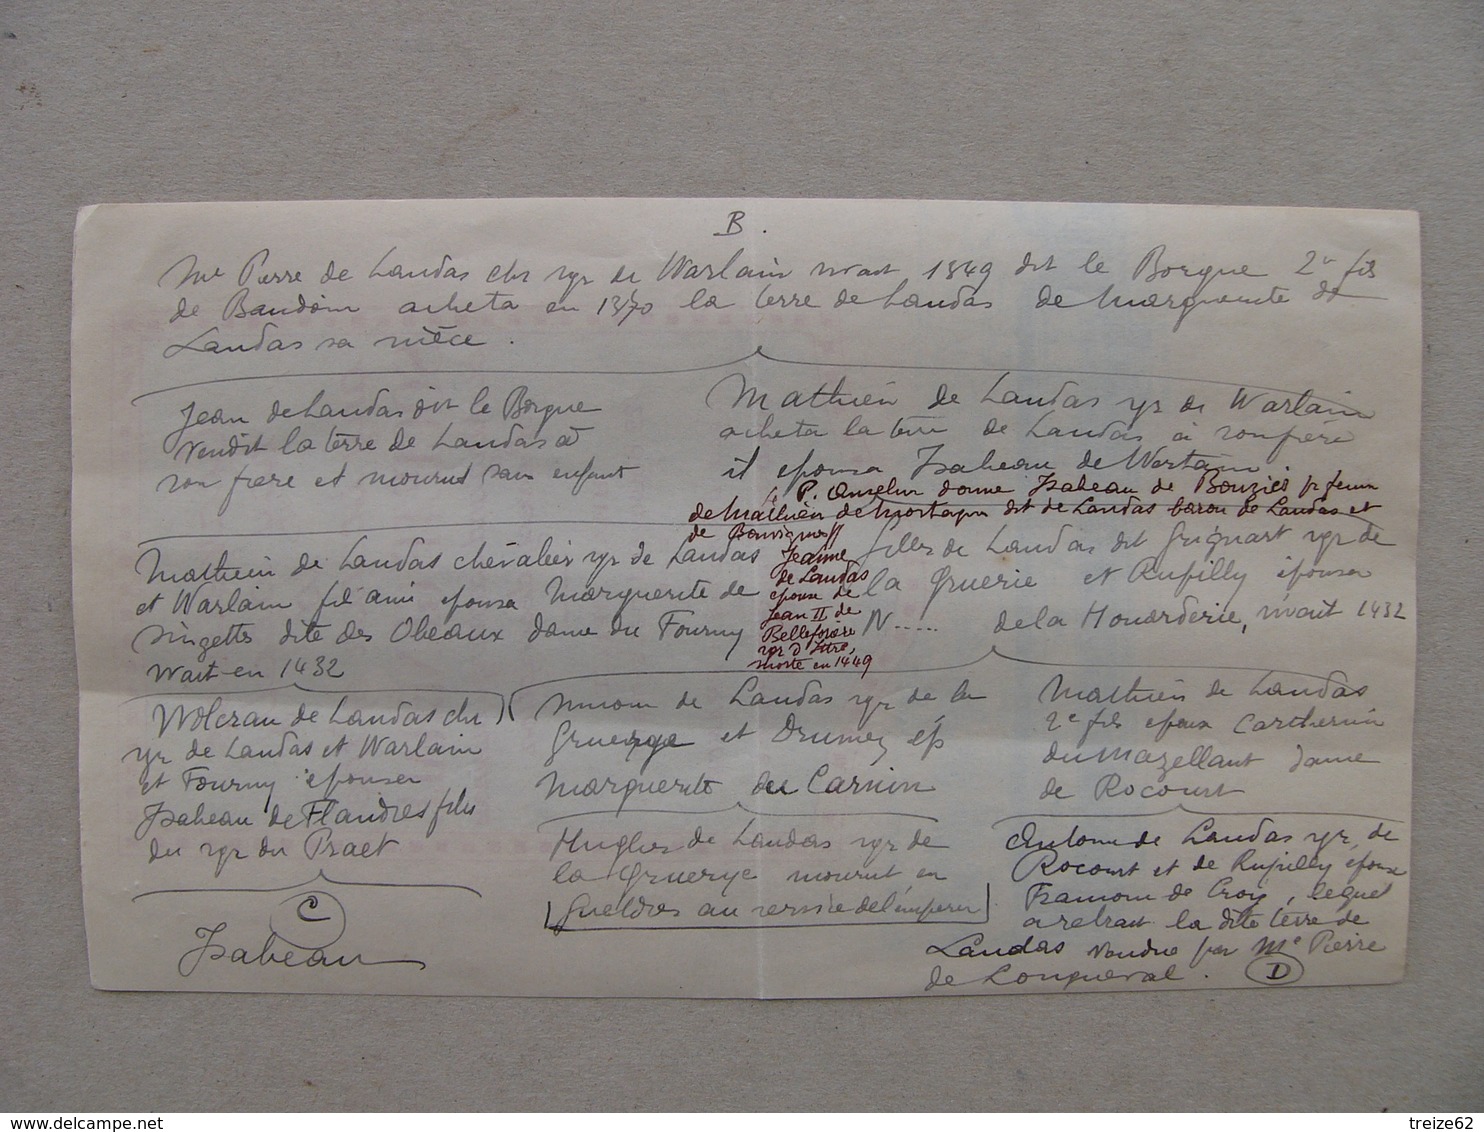 B.
Mre Pierre de Landas chr sgr de Warlain vivait 1349 dit le Borgne 2e fils
de Baudoin acheta en 1370 la terre de Landas de Marguerite de
Landas sa nièce.
Jean de Landas dit le Borgne
vendit la terre de Landas à
son frère et mourut sans enfant
Mathieu de Landas sgr de Warlain
acheta la terre de Landas à son frère
il épousa Isabeau de Wartain
le P. Anselme donne Isabeau de Bouzies pr femme
de Mathieu de Mortagne dit de Landas baron de Landas et
de Bouvignies //
Mathieu de Landas chevalier sgr de Landas
et Warlain fils ainé épousa Marguerite de
Singettes dite des Obeaux dame du Fourny
vivait en 1432
Jeanne
de Landas
épouse de
Jean II de
Belleforière
sgr d'Ittre,
morte en 1449
Gilles de Landas dit Grignart sgr de
la Gruerie et Rupilly épousa
N..... de la Houarderie, vivait 1432
Wolcran de Landas chr
sgr de Landas et Warlain
et Fourny épousa
Isabeau de Flandres fille
du sgr du Praet
C
Isabeau
de Landas sgr de la
Gruerye et Drumez ép
Marguerite de Carnin
Hughes de Landas sgr de
la Gruerye mourut en
Gueldres au service de l'empereur
Mathieu de Landas
2e fils épousa Catherine
du Mazellant dame
de Rocourt
Antoine de Landas sgr de
Rocourt et de Rupilly épousa
Framoise de Croix, lequel
a retrait la dite terre de
Landas vendue par Mre Pierre
de Longueval. D
treize62